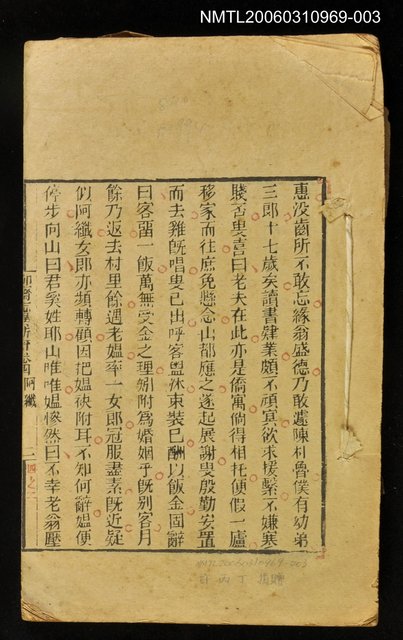 NMTL20060310969-003
惠没齒所不敢忘緣翁盛德乃敢遽陳朴魯僕有幼弟
三郎十七歲矣讀書肄業頗不頑冥欲求援繫不嫌寒
賤否叟喜曰老夫在此亦是僑寓倘得相托便假一廬
移家而往庶免懸念山都應之遂起展謝叟殷勤安置
而去雞旣唱叟已出呼客盥沐束裝已酬以飯金固辭
曰客留一飯萬無受金之理矧附為婚姻乎旣别客月
餘乃返去村里餘遇老媪率一女郎冠服盡素旣近疑
似阿纖女郎亦頻轉顧因把媪袂附耳不知何辭媪便
停步向山曰君奚姓耶山唯唯媪慘然曰不幸老翁壓
阿纖
NMTL20060310969-003